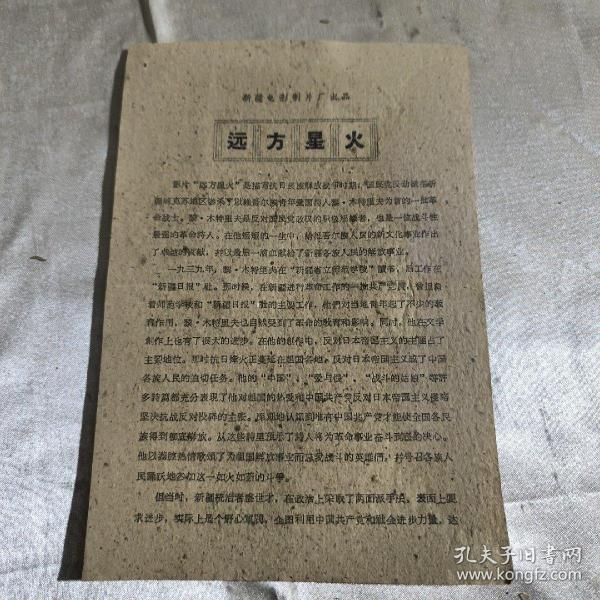 新疆电影制片厂出品
远方星火
影片“远方星火”是描写抗日民族解放战争时期,国民党反动派在新
疆阿克苏地区惨杀了以维吾尔族青年爱国诗人黎·木特里夫为首的一批革
命战士。黎·木特里夫是反对国民党政权的积极组织者,也是一位战斗性
最强的革命诗人。在他短短的一生中,给维吾尔族人民的新文化事业作出
了卓越的贡献,并以最后一滴血献给了新疆各族人民的解放事业。
一九三九年,黎·木特里夫在“新疆省立师范学校”读书,后工作在
“新疆日报”社。那时候,在新疆进行革命工作的一批共产党员,曾担负
着师范学校和“新疆日报”社的主要工作,他們对当地青年起了不少的教
育作用,黎·木特里夫也自然受到了革命的教育和影响。同时,他在文学
創作上也有了很大的进步。在他的創作中,反对日本帝国主义的主題占了
主要地位。那时抗日烽火正蔓延在祖国各地。反对日本帝国主义成了中国
各族人民的迫切任务。他的“中国”,“爱与恨”,“战斗的姑娘”等許
多诗篇都充分表現了他对祖国的热爱和中国共产党反对日本帝国主义侵略
坚决抗战反对投降的主张。深刻地认識到唯有中国共产党才能使全国各民
族得到彻底解放。从这些诗里预示了詩人将为革命事业奋斗到底的决心。
他以澎湃热情歌頌了为祖国解放事业而忘我战斗的英雄們,并号召各族人
民踊跃地参加这一如火如荼的斗爭。
但当时,新疆統治者盛世才,在政治上采取了两面派手法,表面上要
求进步,实际上是个野心軍閥,企图利用中国共产党和社会进步力量,达
孔夫子旧书网
www.kongfz.com